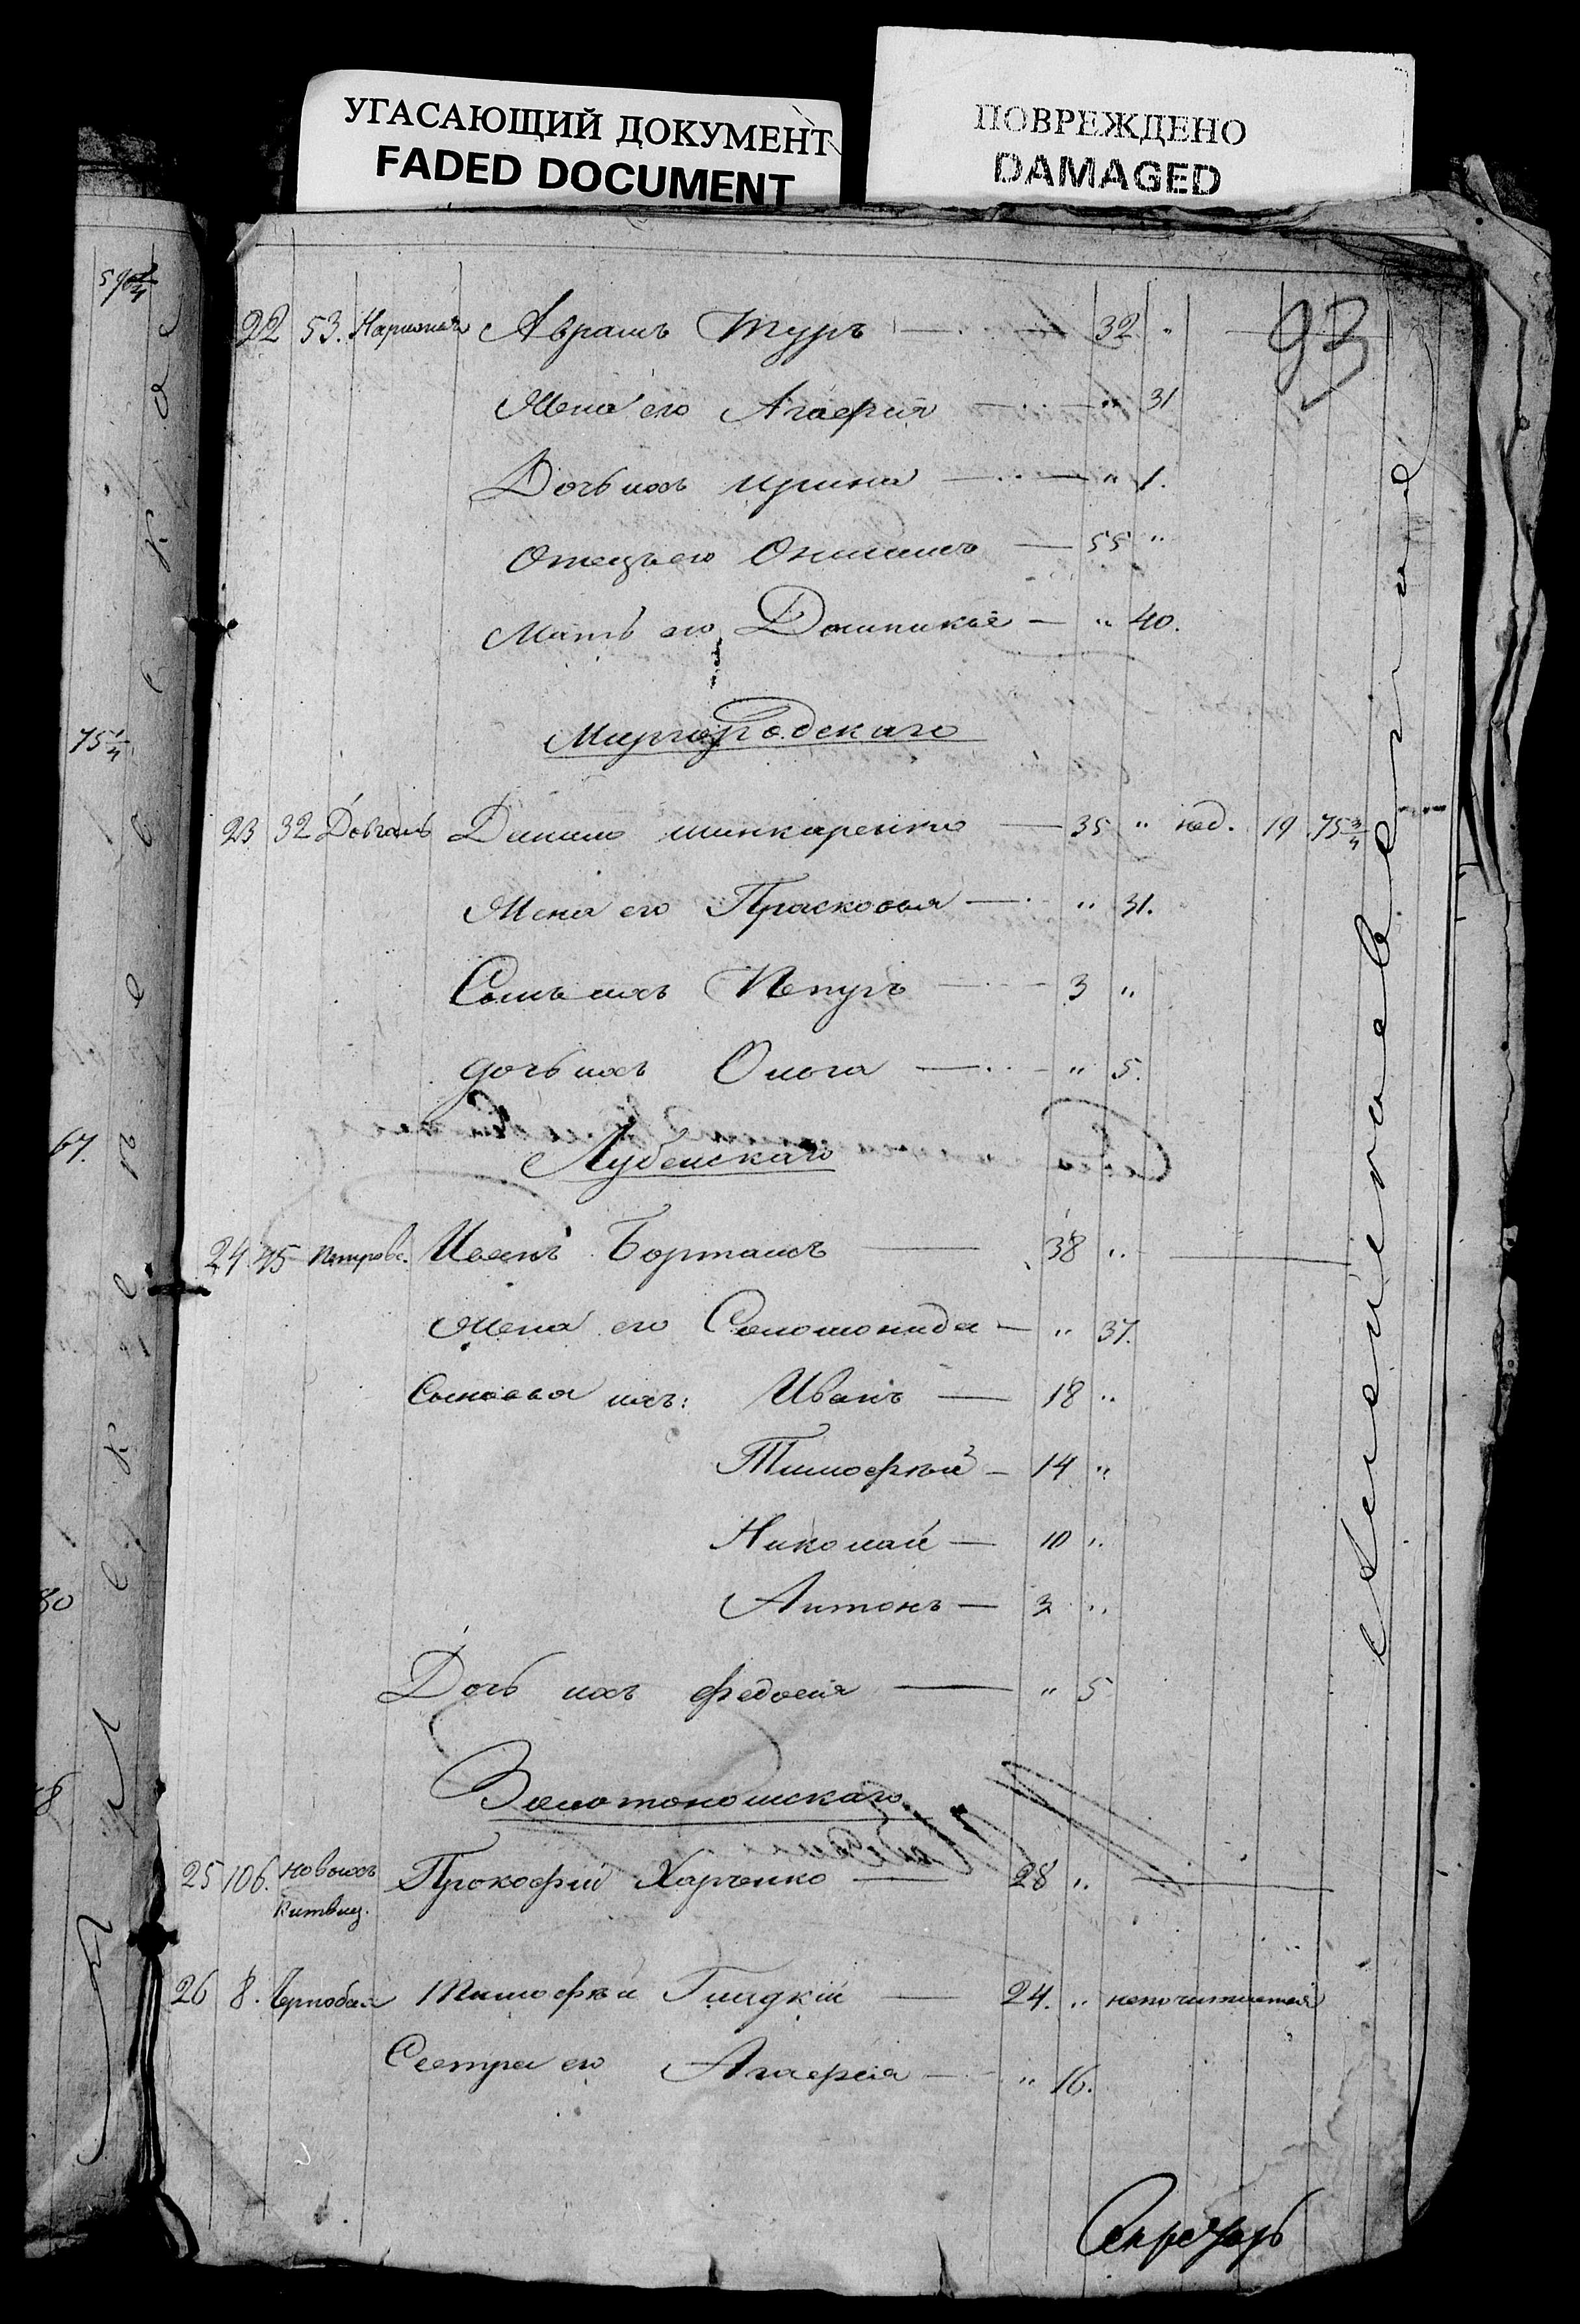 УГАСАЮЩИЙ ДОКУМЕНТ
FADED DOCUMENT
ПОВРЕЖДЕНО
DAMAGED
93
22 53. Аврамъ Туръ — 32 "
Жена его Агафия — " 31
Дочь ихъ Ирина — " 1.
Отецъ его Онисимъ — 55 "
Мать его Домникия — " 40.
Миргородскаго
23 32 Довгаль Данило Шинкаренко — 35 " над. 19 75 3/4
Жена его Прасковья — " 31.
Сынъ ихъ Петръ — 3 "
дочь ихъ Олга — " 5.
Лубенскаго
24 45 Петровс. Иванъ Борташъ — 38 "
Жена его Соломонида — " 37.
Сыновья ихъ: Иванъ — 18 "
Тимофѣй — 14 "
Николай — 10 "
Антонъ — 3 "
Дочь ихъ Федосия — " 5
Золотоношскаго
25 106. Новыхъ Прокофій Харченко — 28 "
26 8. Чернобая Тимофѣй Гладкій — 24. " непочитается
Сестра его Агафія — " 16.
Секретарь
596
75 1/4
67.
80